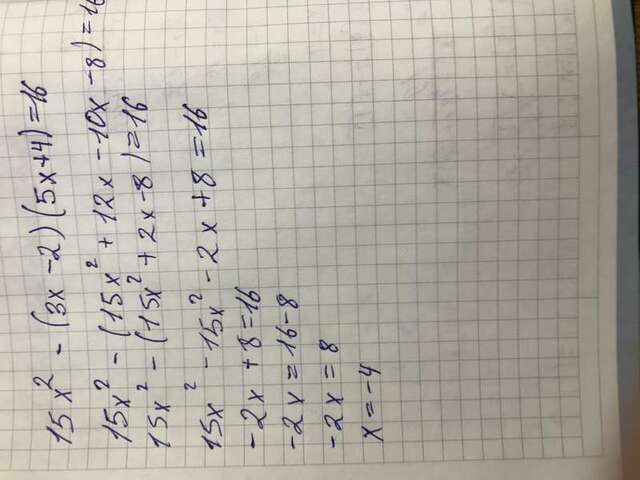 15x² - (3x - 2)(5x+4)=16
15x² - (15x² + 12x - 10x - 8)=16
15x² - (15x² + 2x - 8)=16
15x² - 15x² - 2x + 8 = 16
-2x + 8 = 16
-2x = 16-8
-2x = 8
x = -4